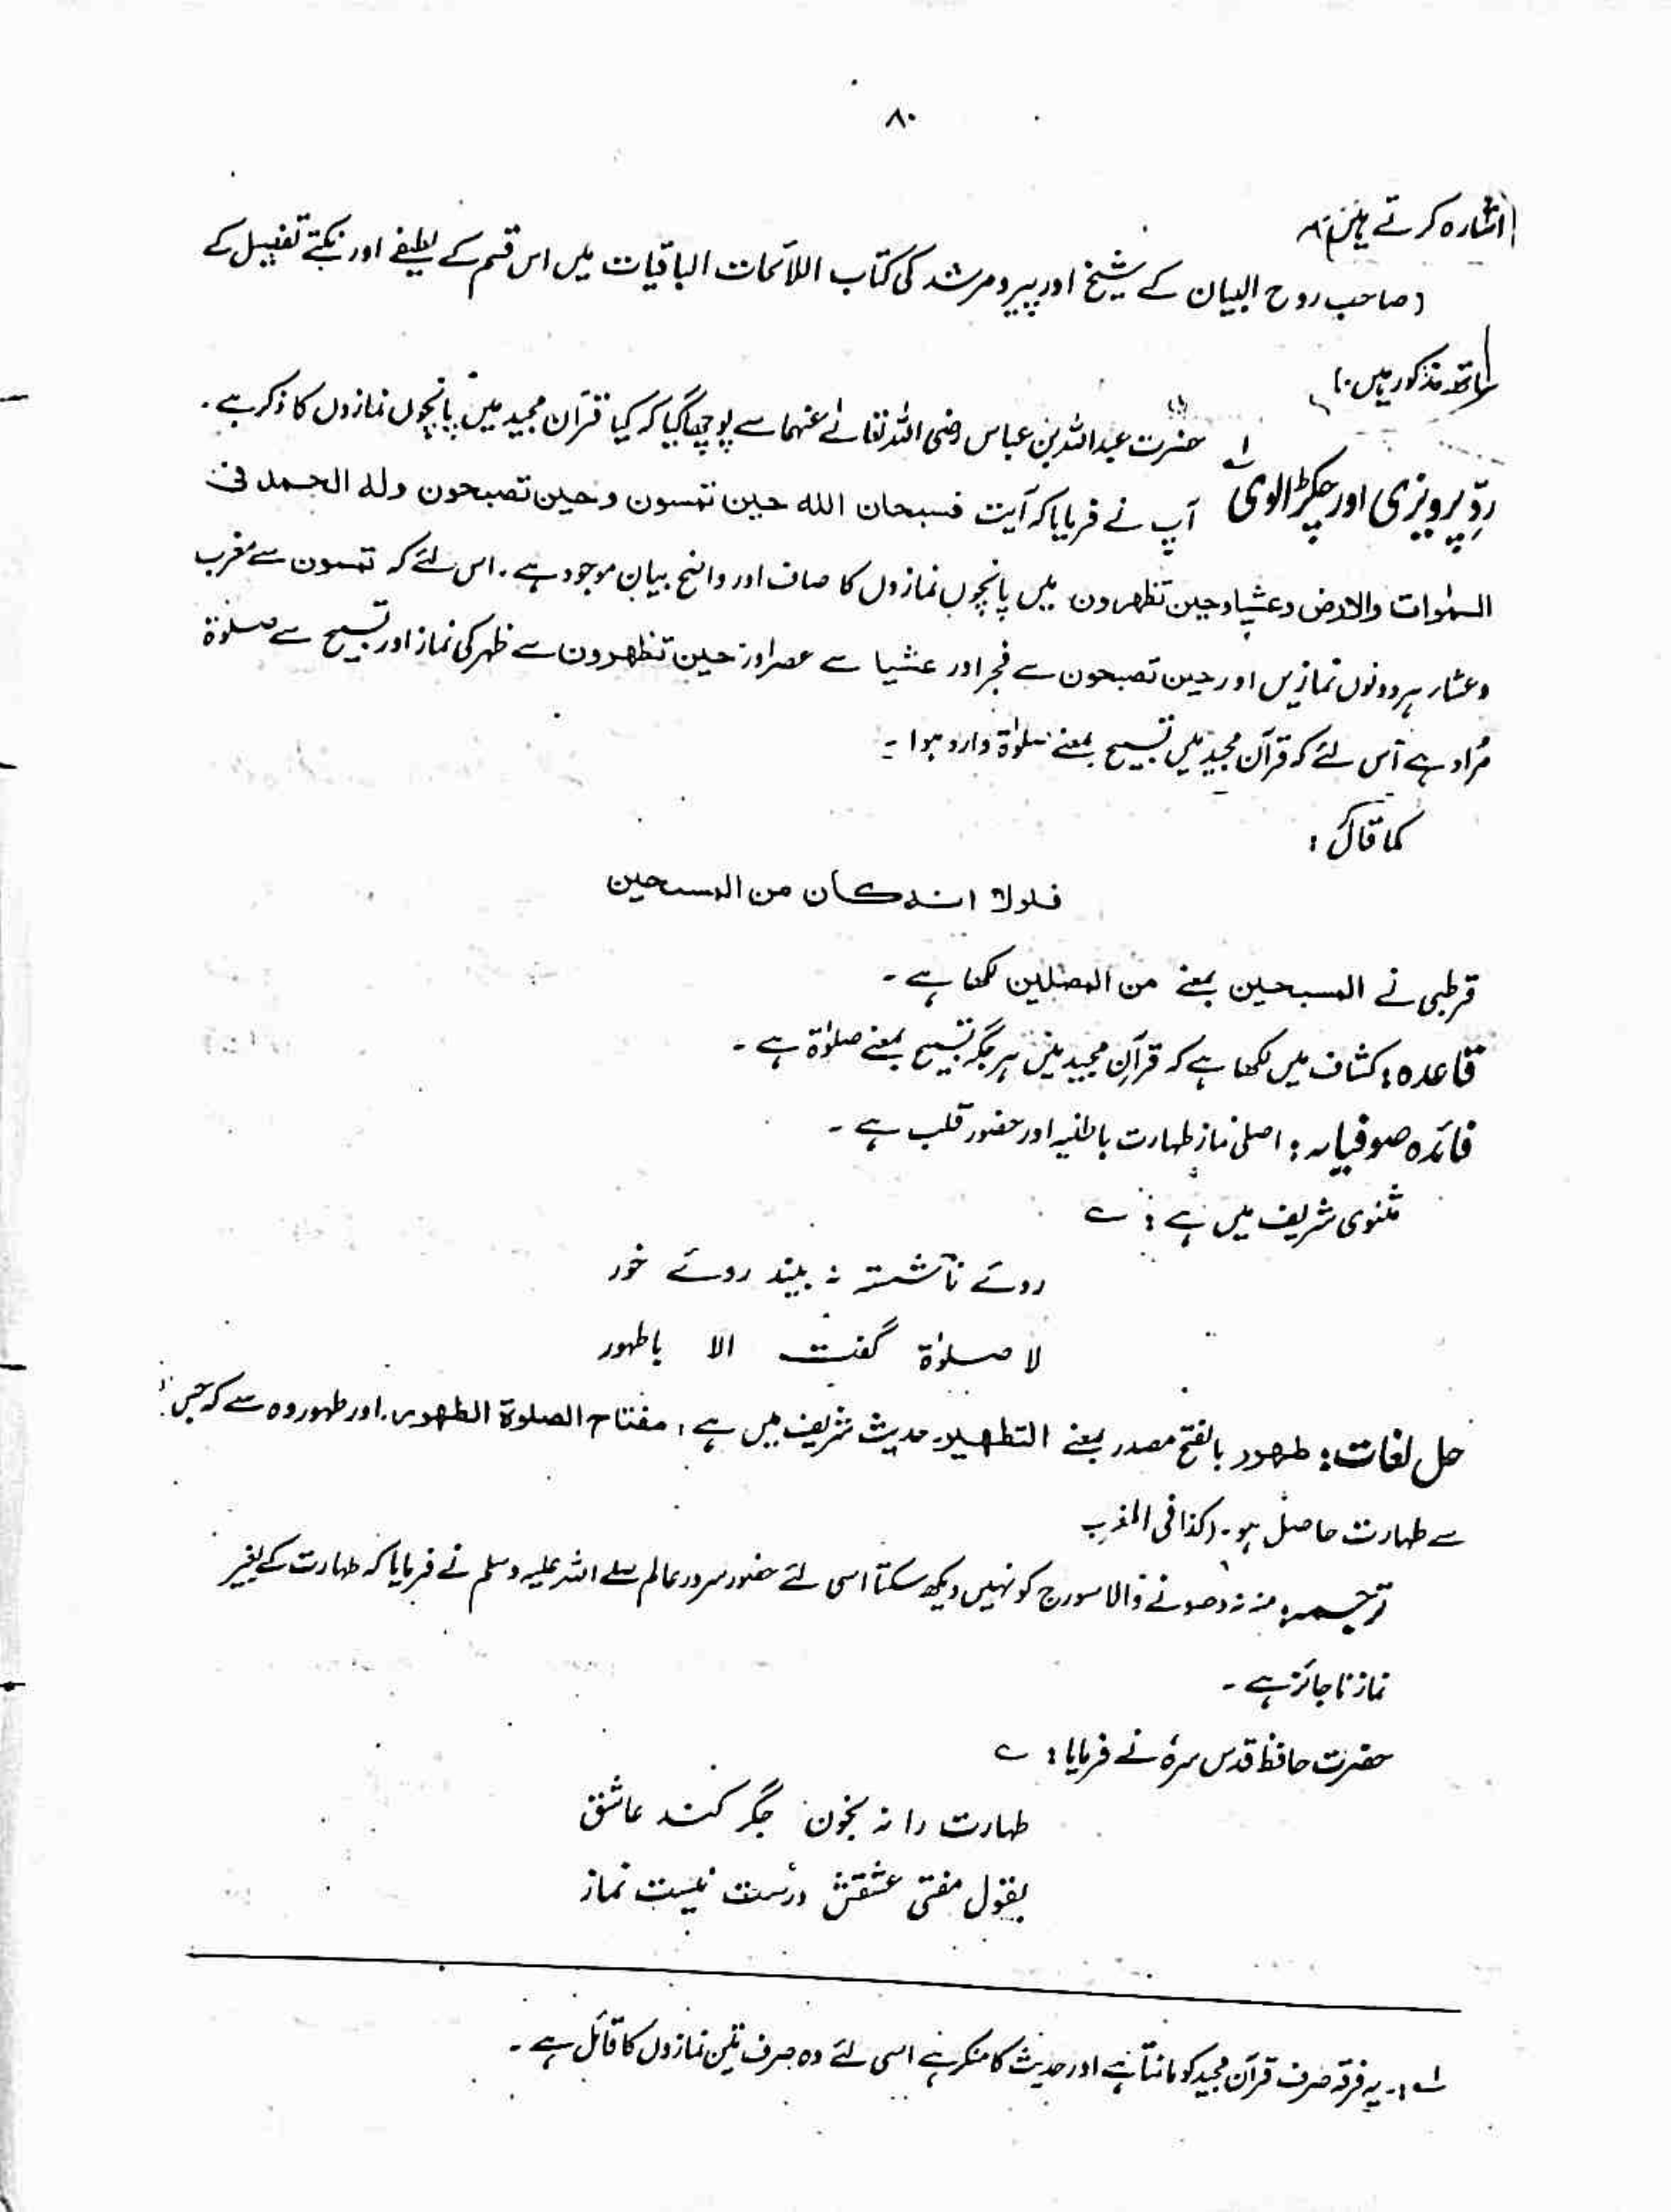 ۸۰
اشارہ کرتے ہیں
(صاحب روح البیان کے شیخ اور پیر و مرشد کی کتاب اللآئحات الباقیات میں اس قسم کے لطیفے اور نکتے تفصیل کے
ساتھ مذکور ہیں۔)
حضرت عبداللہ بن عباس رضی اللہ تعالٰے عنہما سے پوچھا گیا کہ کیا قرآن مجید میں پانچوں نمازوں کا ذکر ہے۔
ردِّ پرویزی اور چکڑالوی لہ آپ نے فرمایا کہ آیت فسبحان اللہ حین تمسون وحین تصبحون ولہ الحمد فی
السمٰوات والارض وعشیا وحین تظھرون میں پانچوں نمازوں کا صاف اور واضح بیان موجود ہے۔ اس لئے کہ تمسون سے مغرب
وعشاء ہر دونوں نمازیں اور حین تصبحون سے فجر اور عشیا سے عصر اور حین تظھرون سے ظہر کی نماز اور تسبیح سے صلوٰۃ
مُراد ہے اس لئے کہ قرآن مجید میں تسبیح بمعنے صلوٰۃ وارد ہوا ۔
کما قال :
فلولا انہ کان من المسبحین
قرطبی نے المسبحین بمعنے من المصلین لکھا ہے ۔
قاعدہ : کشاف میں لکھا ہے کہ قرآن مجید میں ہر جگہ تسبیح بمعنے صلوٰۃ ہے ۔
فائدہ صوفیانہ : اصلی نماز طہارت باطنیہ اور حضور قلب ہے ۔
مثنوی شریف میں ہے : ؎
روئے ناشستہ نہ بیند روئے خور
لا صلوٰۃ گفت الا باطہور
حل لغات : طہور بالفتح مصدر بمعنے التطہیر۔ حدیث شریف میں ہے ، مفتاح الصلوۃ الطھور، اور طہور وہ ہے کہ جس
سے طہارت حاصل ہو۔ (کذا فی المغرب
ترجمہ : منہ نہ دھونے والا سورج کو نہیں دیکھ سکتا اسی لئے حضور سرور عالم صلے اللہ علیہ وسلم نے فرمایا کہ طہارت کے بغیر
نماز ناجائز ہے ۔
حضرت حافظ قدس سرہٗ نے فرمایا : ؎
طہارت را نہ بخون جگر کند عاشق
بقول مفتی عشقش درست نیست نماز
لہ :۔ یہ فرقہ صرف قرآن مجید کو مانتا ہے اور حدیث کا منکر ہے اسی لئے وہ صرف تین نمازوں کا قائل ہے ۔